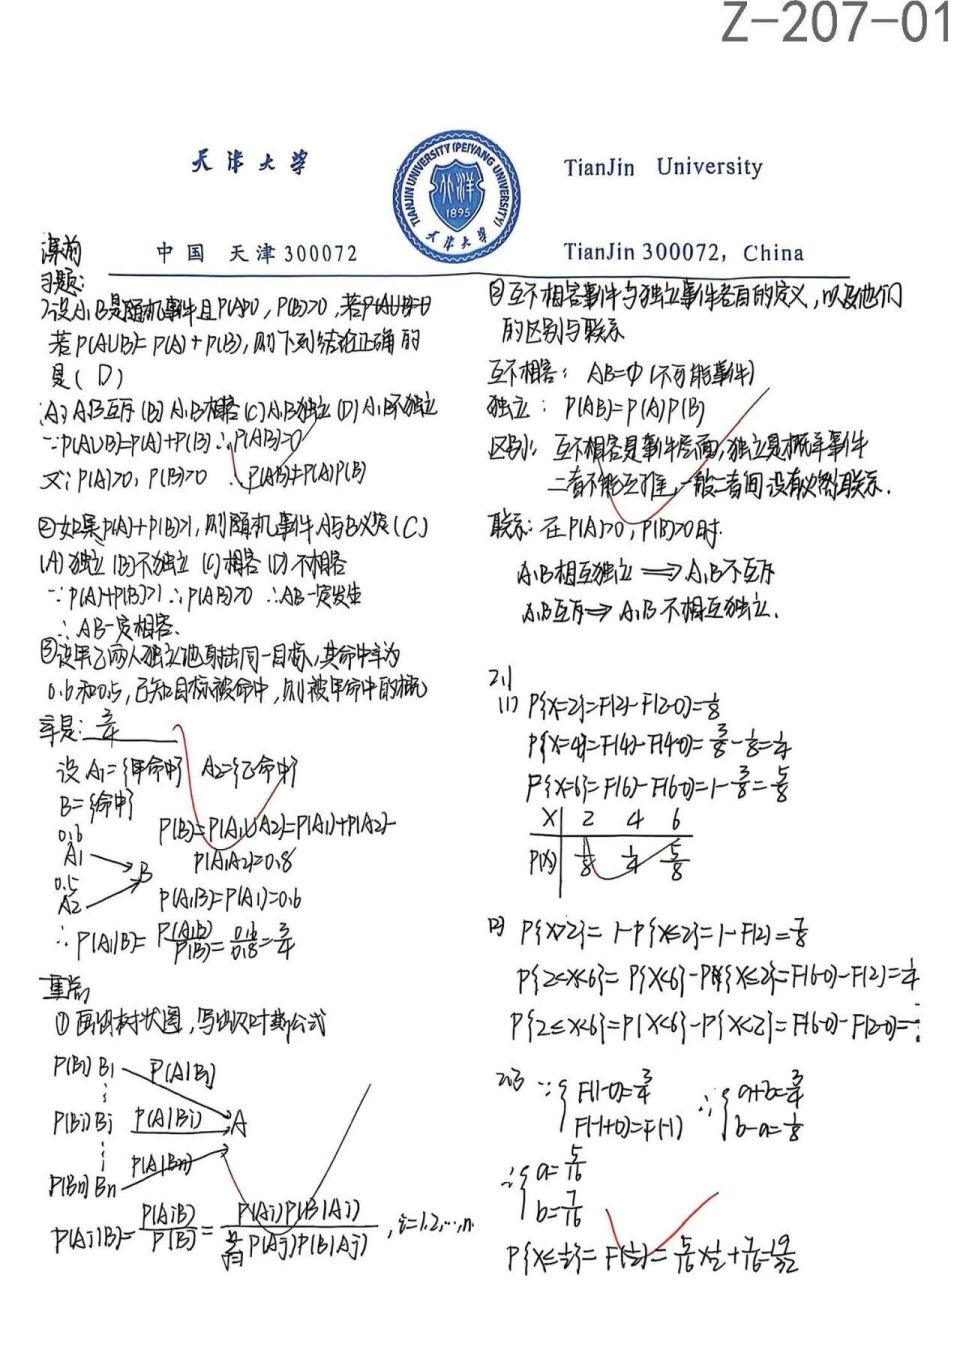 Z-207-01
天津大学
TianJin University
TIANJIN UNIVERSITY (PEIYANG UNIVERSITY)
北洋
1895
天津大学
中国 天津 300072
TianJin 300072, China
课前
习题:
①设A,B是随机事件且P(A)>0, P(B)>0,若P(AUB)=
若P(AUB)=P(A)+P(B),则下列结论正确的
是(D)
(A) A,B互斥 (B) A,B相容 (C) A,B独立 (D) A,B不独立
∵P(AUB)=P(A)+P(B) ∴P(AB)=0
又∵P(A)>0, P(B)>0 ∴P(AB)≠P(A)P(B)
②如果P(A)+P(B)>1,则随机事件A与B必定(C)
(A) 独立 (B)不独立 (C)相容 (D)不相容
∵P(A)+P(B)>1 ∴P(AB)>0 ∴AB一定发生
∴AB一定相容.
③设甲乙两人独立地射击同一目标,其命中率为
0.6和0.5,已知目标被命中,则被甲命中的概
率是: 3/4
设A1={甲命中} A2={乙命中}
B={命中}
0.6
A1
0.5
A2
B
P(B)=P(A1UA2)=P(A1)+P(A2)-
P(A1A2)=0.8
P(A1B)=P(A1)=0.6
∴P(A1|B)=P(A1B)/P(B)=0.6/0.8=3/4
重点
①画出树状图,写出贝叶斯公式
P(B1) B1 P(A|B1)
P(Bi) Bi P(A|Bi) A
P(Bn) Bn P(A|Bn)
P(Ai|B)=P(AiB)/P(B)=P(Ai)P(B|Ai)/∑P(Aj)P(B|Aj), i=1,2,…,n.
②互不相容事件与独立事件各自的定义,以及他们
的区别与联系
互不相容: AB=Φ (不可能事件)
独立: P(AB)=P(A)P(B)
区别: 互不相容是事件层面,独立是概率事件
二者不能互推,一般二者间没有必然联系.
联系: 在P(A)>0, P(B)>0时.
A,B相互独立⟹A,B不互斥
A,B互斥⟹A,B不相互独立.
2.1
(1) P{X=2}=F(2)-F(2-0)=1/8
P{X=4}=F(4)-F(4-0)=3/8-1/8=1/4
P{X=6}=F(6)-F(6-0)=1-3/8=5/8
X 2 4 6
P(X) 1/8 1/4 5/8
(2) P{X>2}=1-P{X≤2}=1-F(2)=7/8
P{2<X<6}=P{X<6}-P{X≤2}=F(6-0)-F(2)=1/4
P{2≤X<6}=P{X<6}-P{X<2}=F(6-0)-F(2-0)=
2.3 ∵{F(1-0)=3/4
F(-1+0)=F(-1)
∴{a+b=3/4
b-a=1/8
∴{a=5/16
b=7/16
P{X≤1/2}=F(1/2)=5/16×1/2+7/16=19/32